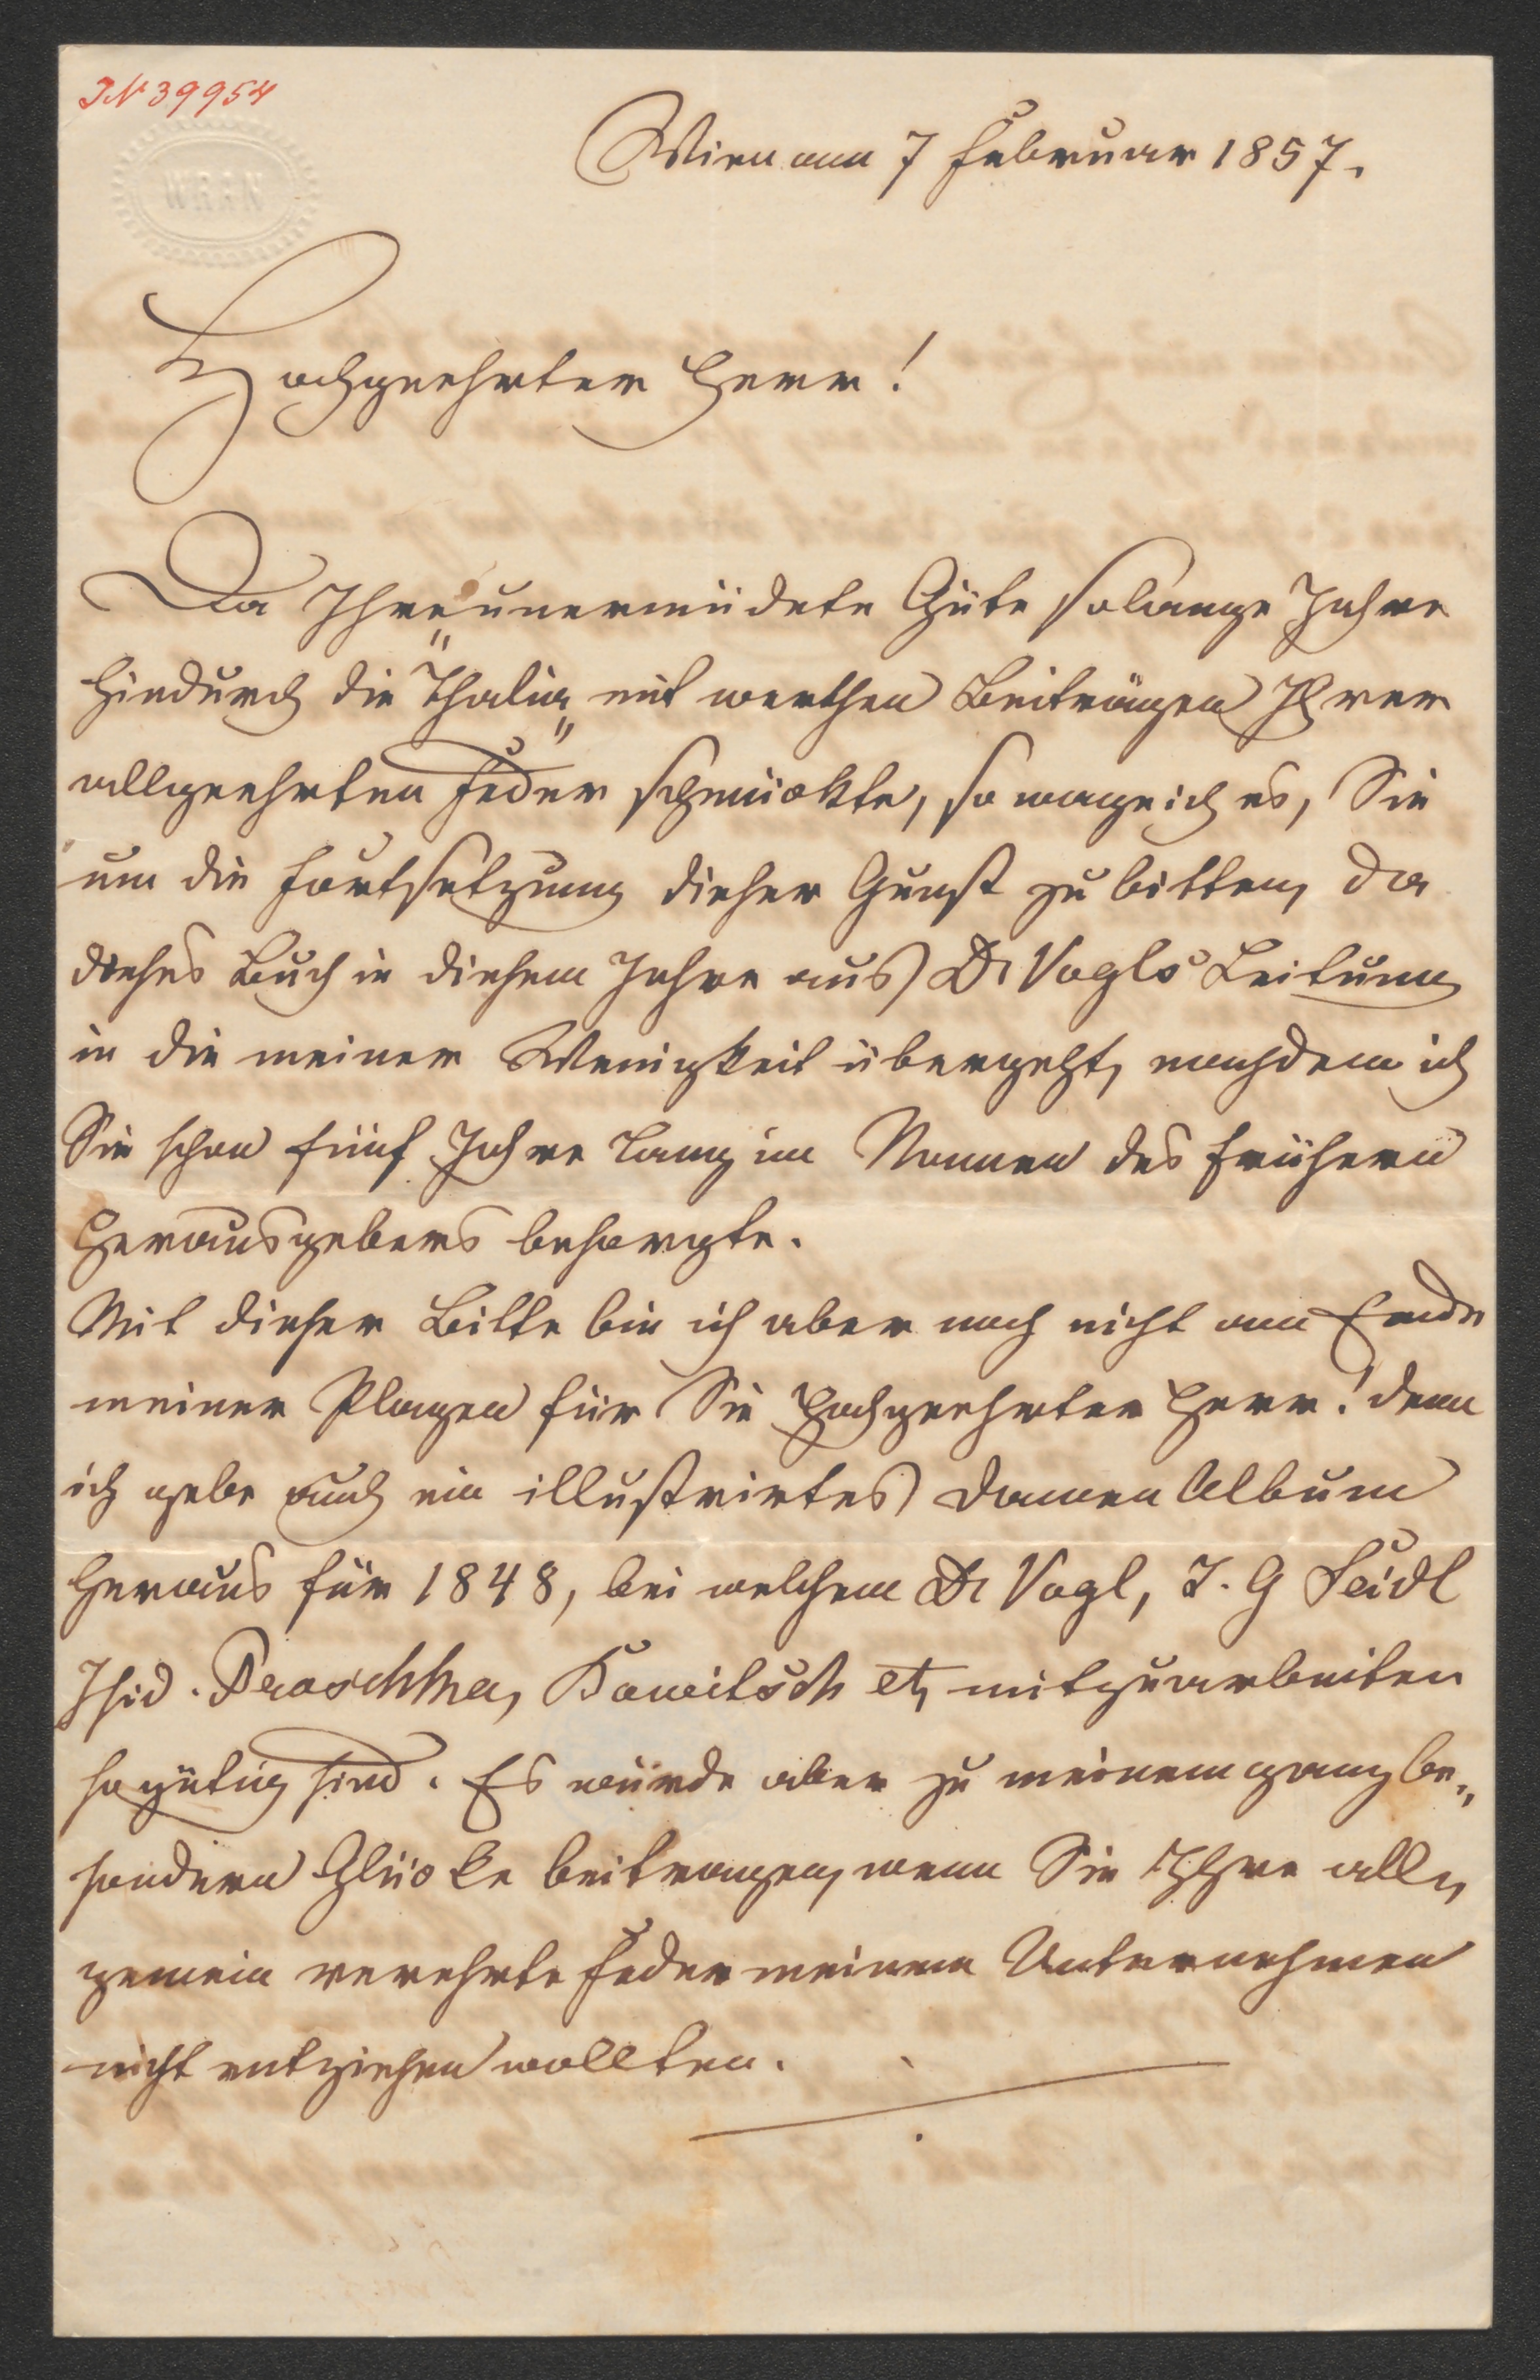 IN 39954
WIEN
Wien am 7 Februar 1857.
Hochgeehrter Herr!
Da Ihre unermüdete Güte solange Jahre
hindurch die "Thalia" mit werthen Beiträgen Ihrer
allgeehrten Feder schmückte, so wage ich es, Sie
um die Fortsetzung dieser Gunst zu bitten, da
dieses Buch in diesem Jahre aus Dr Vogls Leitung
in die meiner Wenigkeit übergeht, nachdem ich
Sie schon fünf Jahre lang im Namen des frühern
Herausgebers besorgte.
Mit dieser Bitte bin ich aber noch nicht am Ende
meiner Plagen für Sie hochgeehrter Herr! denn
ich gebe auch ein illustrirtes Damen Album
heraus für 1848, bei welchem Dr Vogl, J. G Seidl
Isid. Proschko, et, mitzuarbeiten
so gütig sind. Es würde aber zu meinem ganz be„
sondern Glücke beitragen, wenn Sie Ihre all„
gemein verehrte Feder meinem Unternehmen
nicht entziehen wollten.